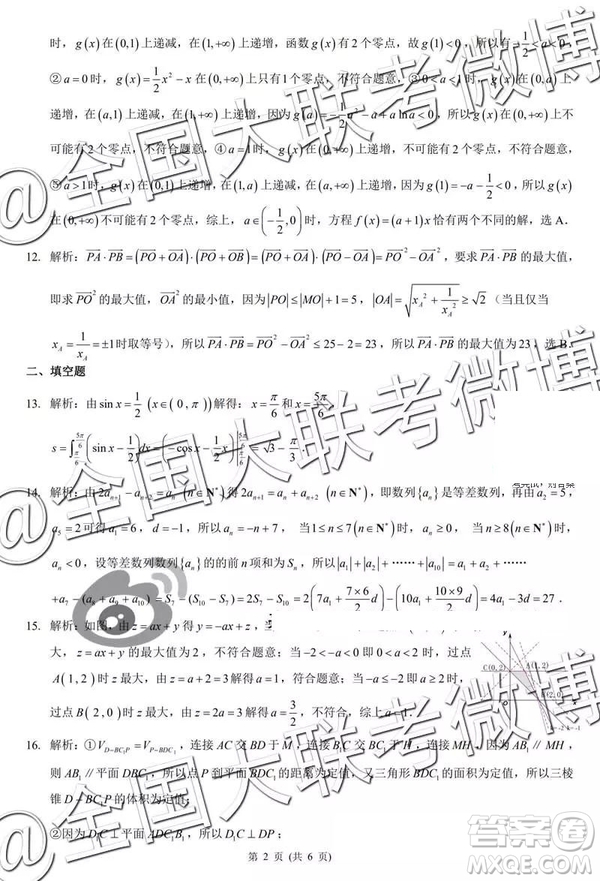 时，g(x)在(0,1)上递减，在(1,+∞)上递增，函数g(x)有2个零点，故g(1)<0，所以有-1/2<a<0，
②a=0时，g(x)=1/2x²-x在(0,+∞)上只有1个零点，不符合题意，③0<a<1时，g(x)在(0,a)上
递增，在(a,1)上递减，在(1,+∞)上递增，因为g(a)=-1/2a²-a+alna<0，所以g(x)在(0,+∞)不
可能有2个零点，不符合题意，④a=1时，g(x)在(0,+∞)上递增，不可能有2个零点，不符合题意，
⑤a>1时，g(x)在(0,1)上递增，在(1,a)上递减，在(a,+∞)上递增，因为g(1)=-a-1/2<0，所以g(x)
在(0,+∞)不可能有2个零点，综上，a∈(-1/2,0)时，方程f(x)=(a+1)x恰有两个不同的解，选A．
12. 解析：PA·PB=(PO+OA)·(PO+OB)=(PO+OA)·(PO-OA)=PO²-OA²，要求PA·PB的最大值，
即求PO²的最大值，OA²的最小值，因为|PO|≤|MO|+1=5，|OA|=√(x_A²+1/x_A²)≥√2（当且仅当
x_A=1/x_A=±1时取等号），所以PA·PB=PO²-OA²≤25-2=23，所以PA·PB的最大值为23，选B．
二、填空题
13. 解析：由sinx=1/2（x∈(0,π)）解得：x=π/6和x=5π/6，
s=∫(sinx-1/2)dx=(-cosx-1/2x)=√3-π/3．
14. 解析：由2a_{n+1}-a_n=a_{n+2}(n∈N*)得2a_{n+1}=a_n+a_{n+2}(n∈N*)，即数列{a_n}是等差数列，再由a_2=5，
a_5=2可得a_1=6，d=-1，所以a_n=-n+7，当1≤n≤7(n∈N*)时，a_n≥0，当n≥8(n∈N*)时，
a_n<0，设等差数列数列{a_n}的的前n项和为S_n，所以|a_1|+|a_2|+……+|a_10|=a_1+a_2+……
+a_7-(a_8+a_9+a_10)=S_7-(S_10-S_7)=2S_7-S_10=2(7a_1+7×6/2d)-(10a_1+10×9/2d)=4a_1-3d=27．
15. 解析：如图，由z=ax+y得y=-ax+z，
大，z=ax+y的最大值为2，不符合题意；当-2<-a<0即0<a<2时，过点
A(1,2)时z最大，由a+2=3解得a=1，符合题意；当-a≤-2即a≥2时，
过点B(2,0)时z最大，由2a=3解得a=3/2，不符合，综上a=1．
C(0,2) A(1,2)
B(2,0)
16. 解析：①V_{D-BC₁P}=V_{P-BDC₁}，连接AC交BD于M，连接B₁C交BC₁于H，连接MH，因为AB₁∥MH，
则AB₁∥平面DBC₁，所以点P到平面BDC₁的距离为定值，又三角形BDC₁的面积为定值，所以三棱
锥D-BC₁P的体积为定值；
②因为D₁C⊥平面ADC₁B₁，所以D₁C⊥DP；
第 2 页 (共 6 页)
@全国大联考微博
@全国大联考微博
@全国大联考微博
答案圈
MXQE.COM